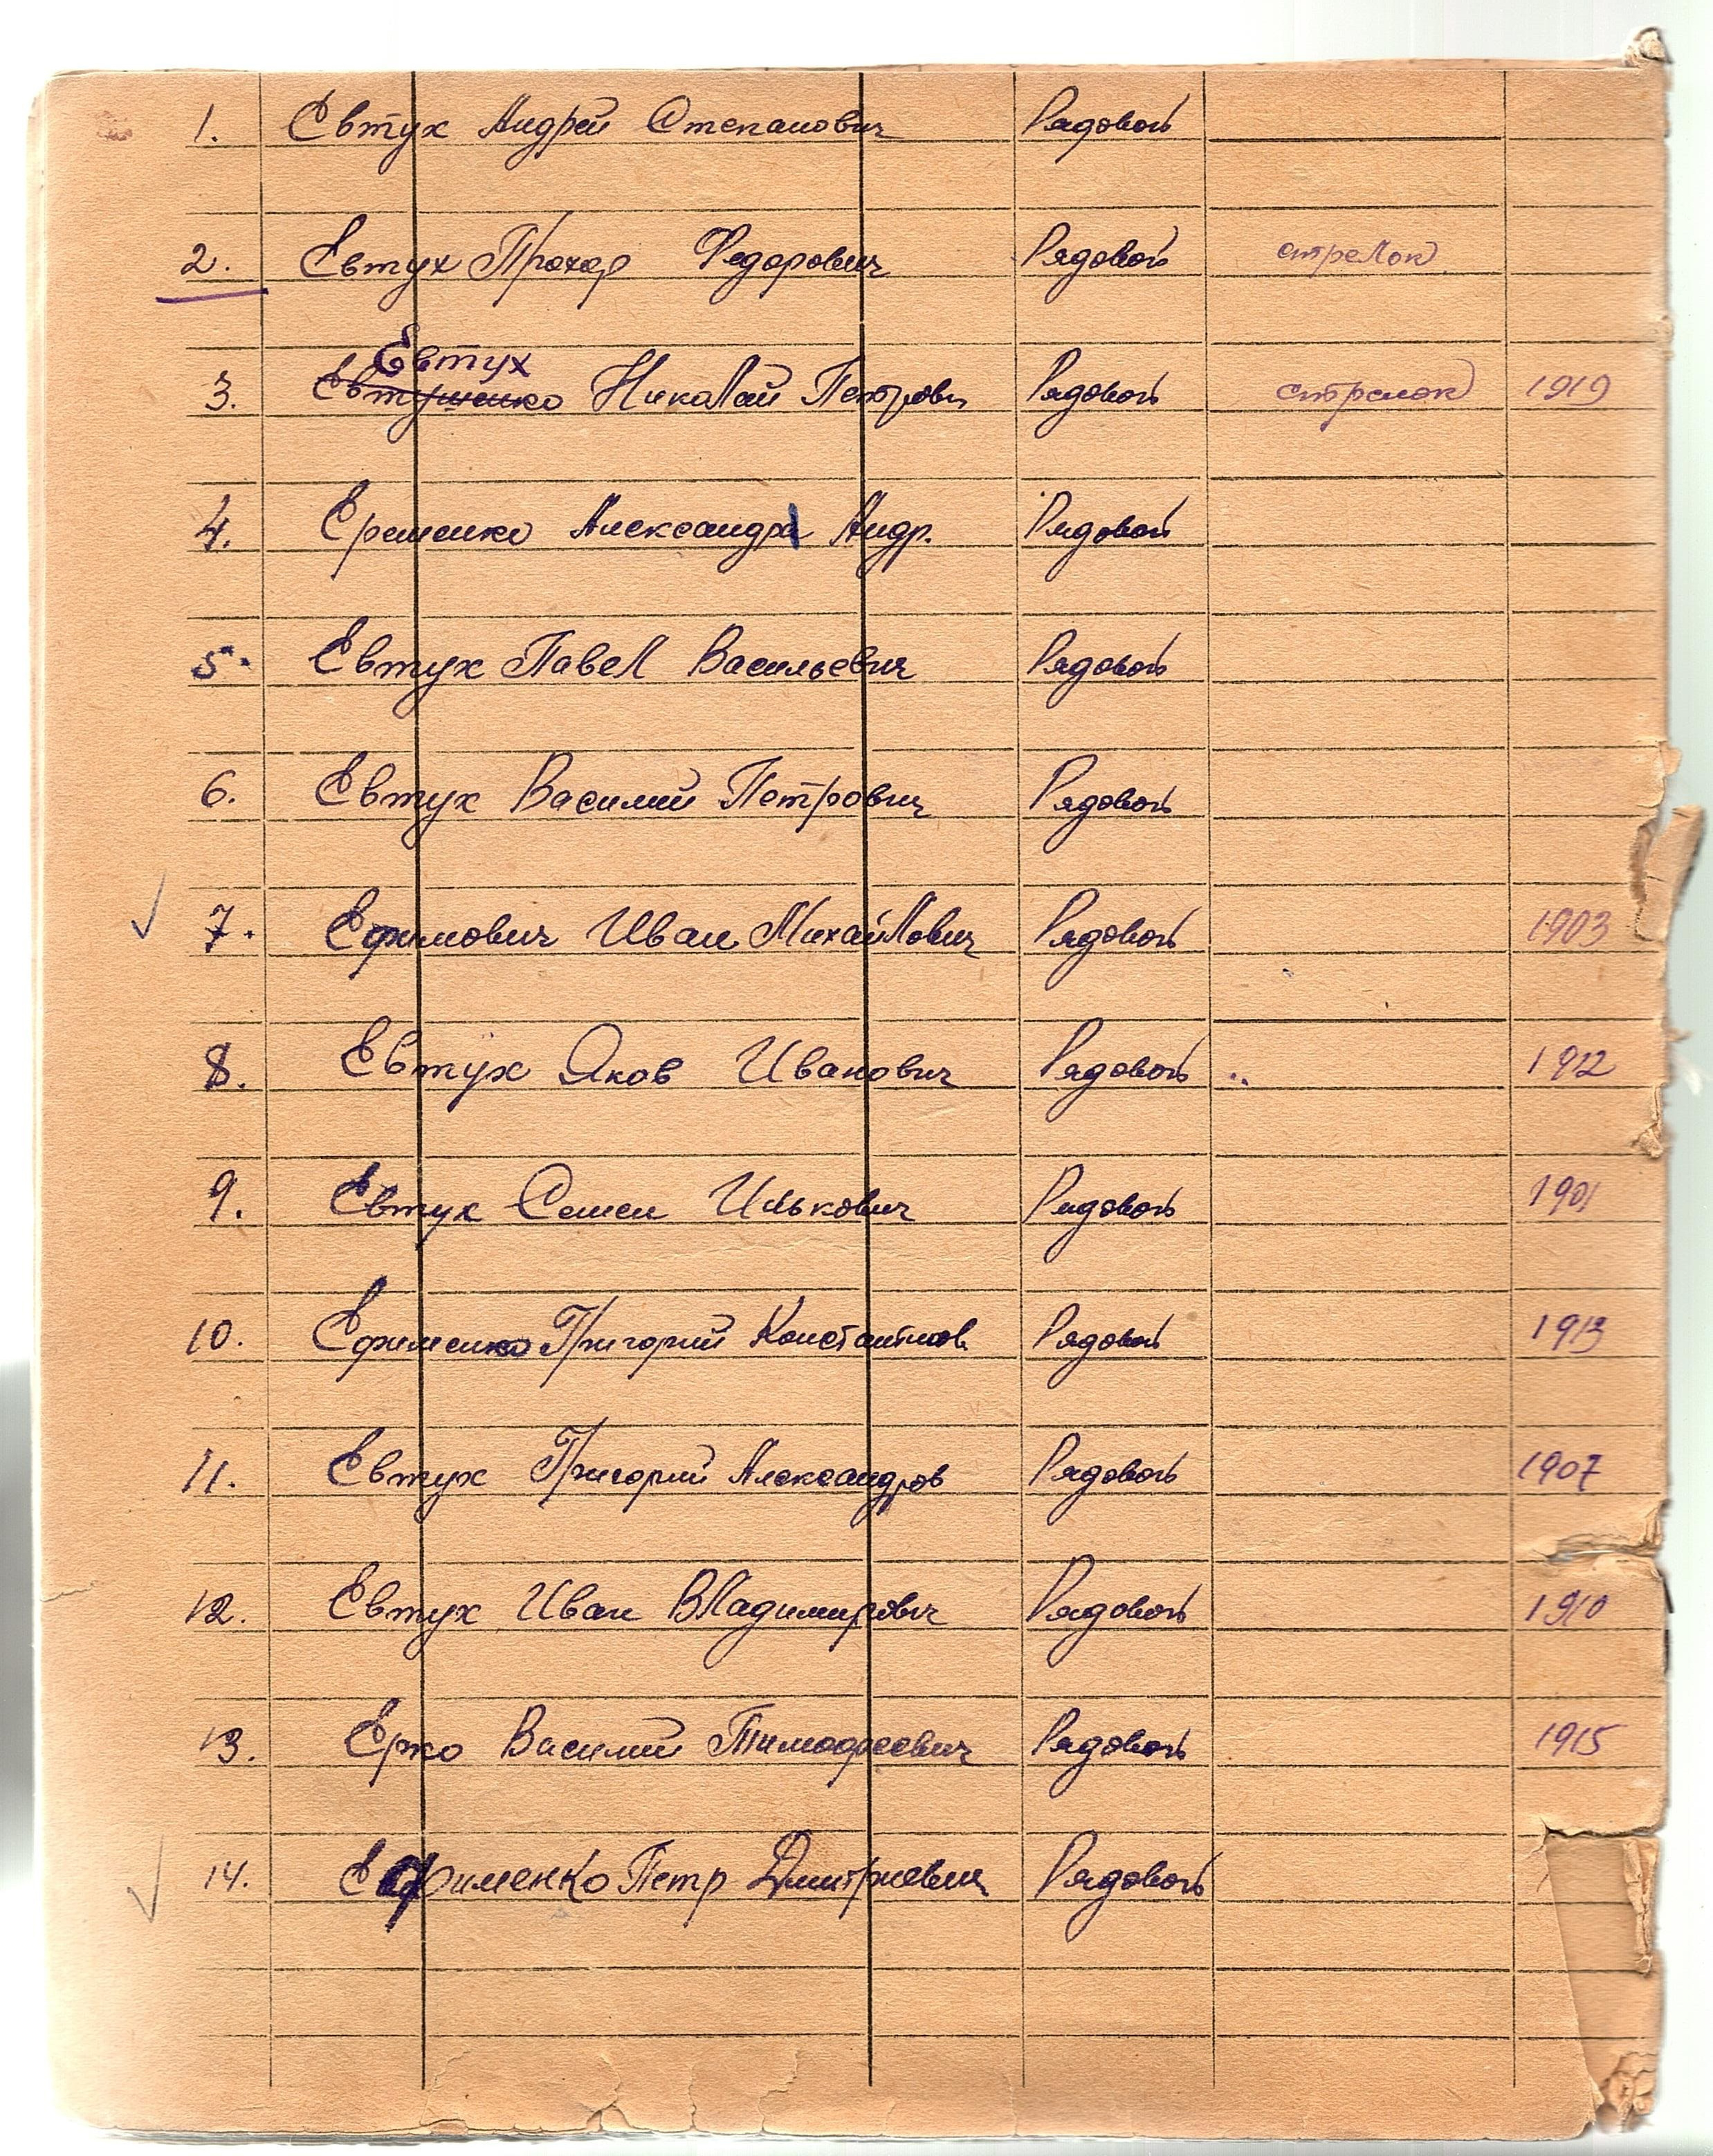 1. Евтух Андрей Степанович Рядовой
2. Евтух Прохор Федорович Рядовой стрелок
Евтух
3. Евтушенко Николай Петрович Рядовой стрелок 1919
4. Еременко Александр Андр. Рядовой
5. Евтух Павел Васильевич Рядовой
6. Евтух Василий Петрович Рядовой
7. Ефимович Иван Михайлович Рядовой 1903
8. Евтух Яков Иванович Рядовой 1912
9. Евтух Семен Илькович Рядовой 1901
10. Ефименко Григорий Константинов Рядовой 1913
11. Евтух Григорий Александров Рядовой 1907
12. Евтух Иван Владимирович Рядовой 1910
13. Ерко Василий Тимофеевич Рядовой 1915
14. Ефименко Петр Дмитриевич Рядовой